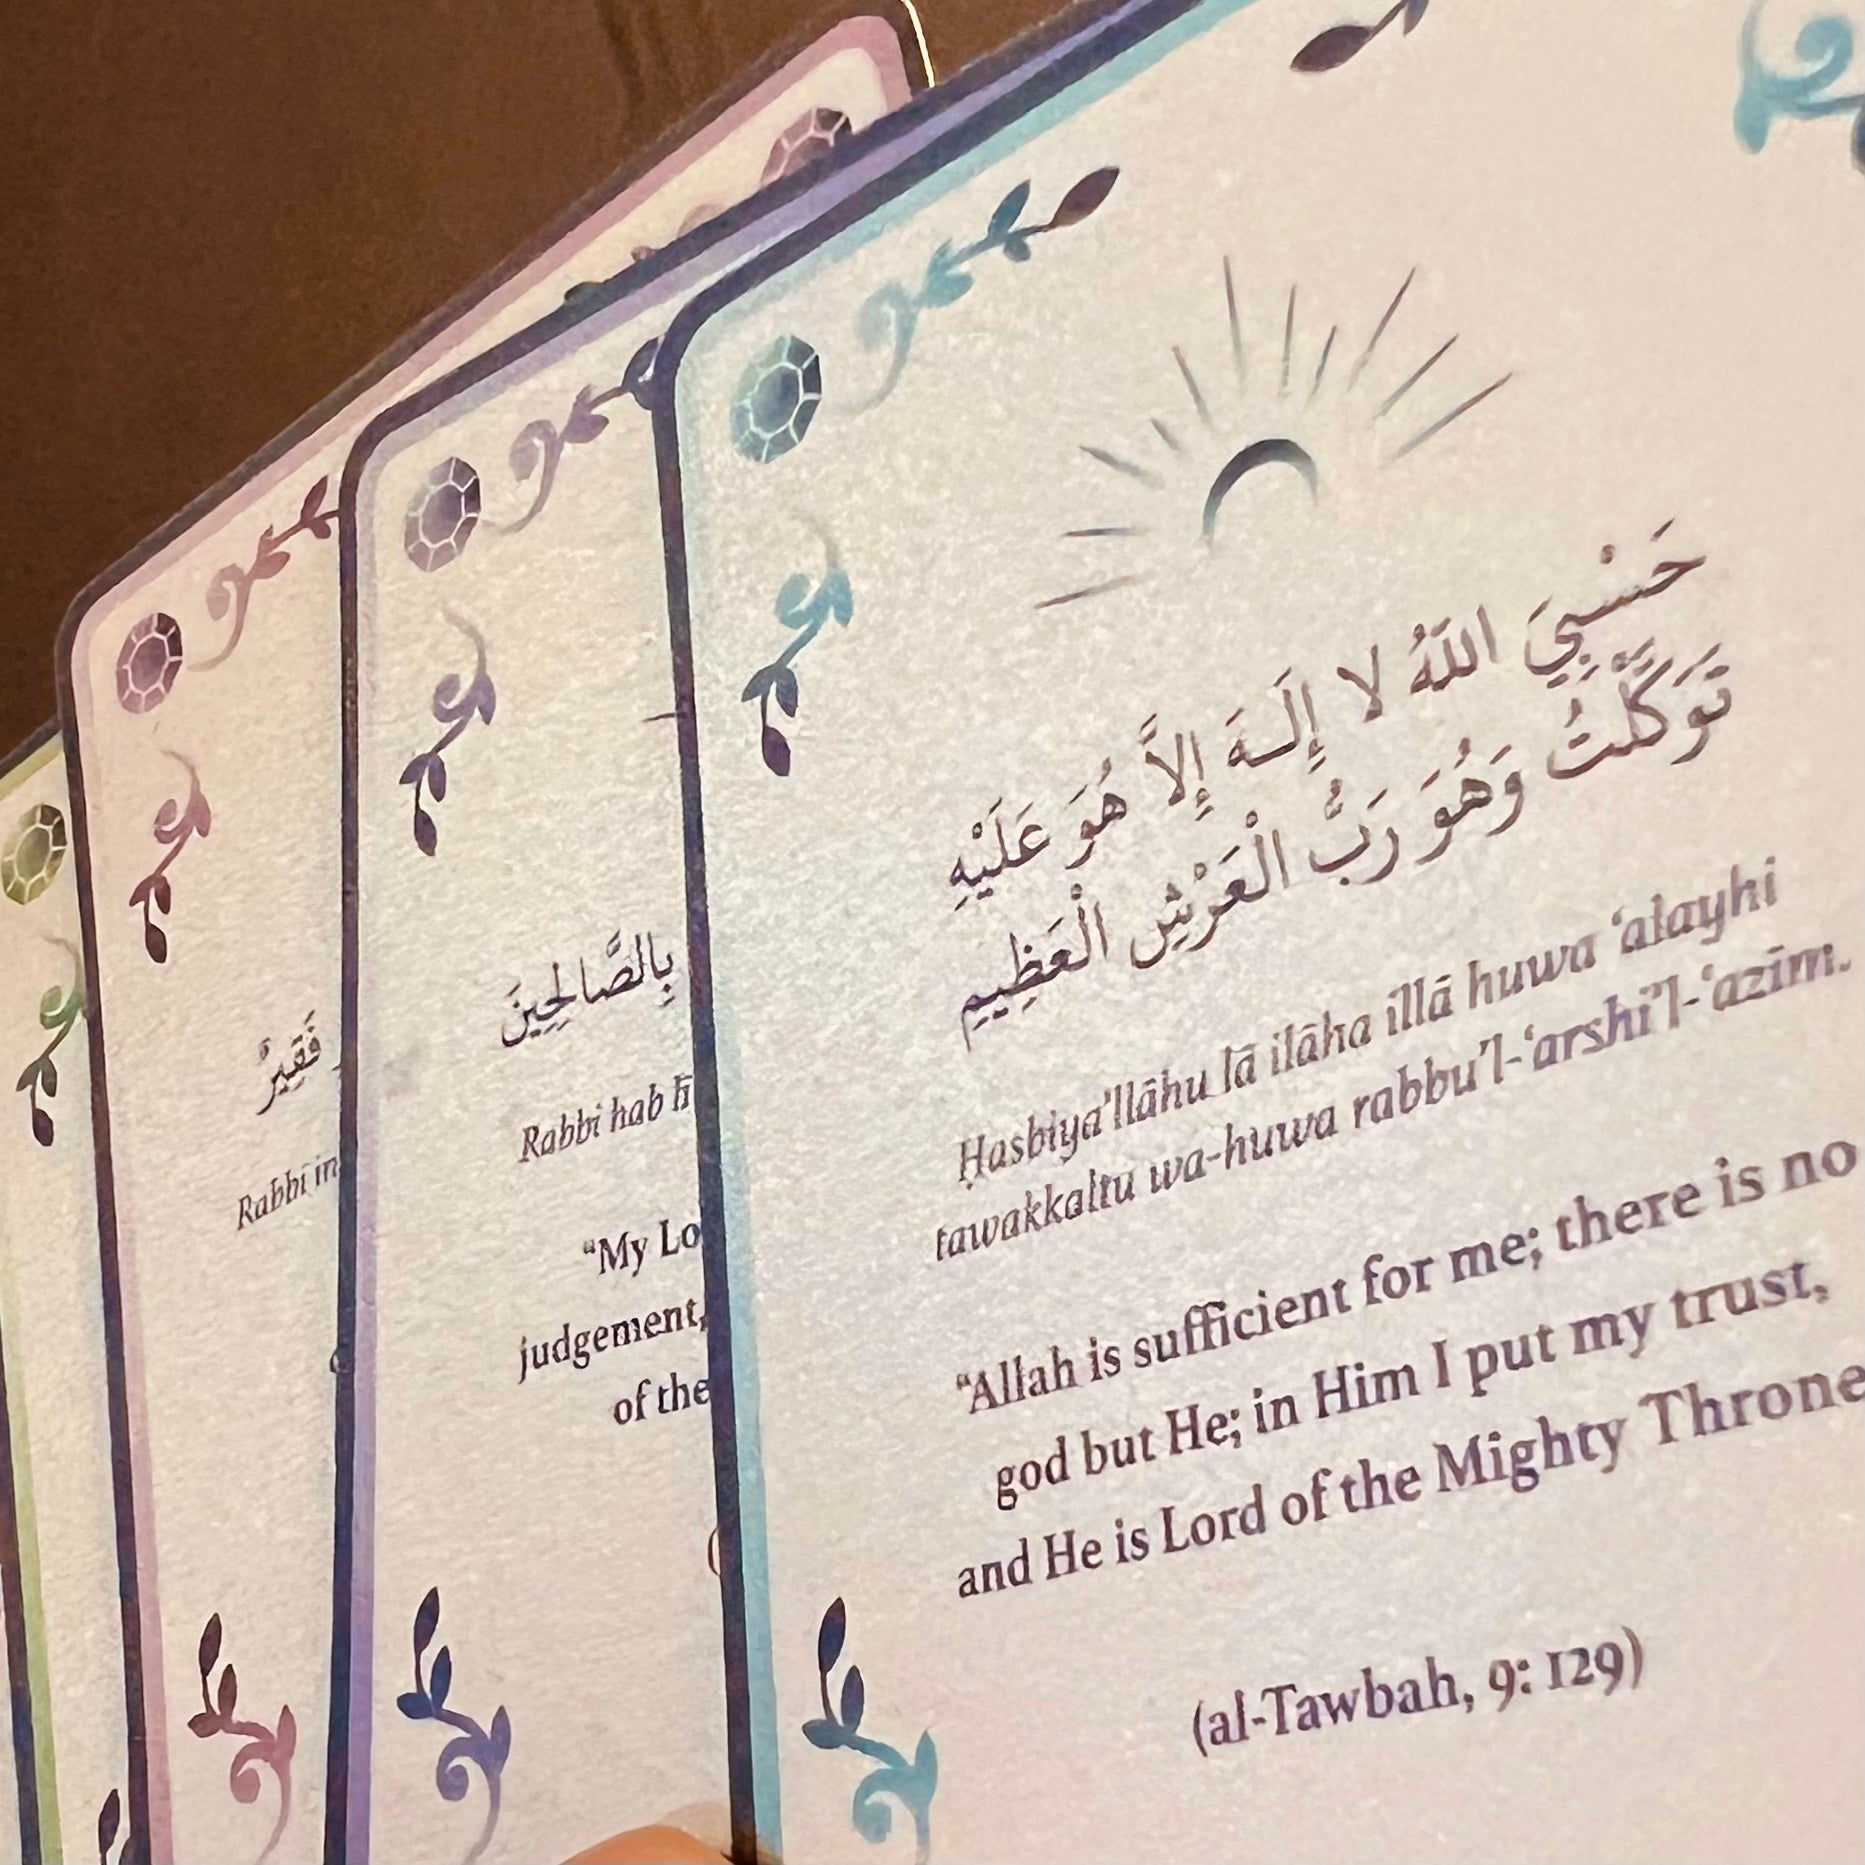 حَسْبِيَ اللَّهُ لا إِلَـهَ إِلاَّ هُوَ عَلَيْهِ
تَوَكَّلْتُ وَهُوَ رَبُّ الْعَرْشِ الْعَظِيمِ
Ḥasbiya’llāhu lā ilāha illā huwa ‘alayhi
tawakkaltu wa-huwa rabbu’l-‘arshi’l-‘azīm.
“Allah is sufficient for me; there is no
god but He; in Him I put my trust,
and He is Lord of the Mighty Throne
(al-Tawbah, 9: 129)
بِالصَّالِحِينَ
Rabbi hab lī
“My Lo
judgement,
of the
(
فَقِيرٌ
Rabbi in